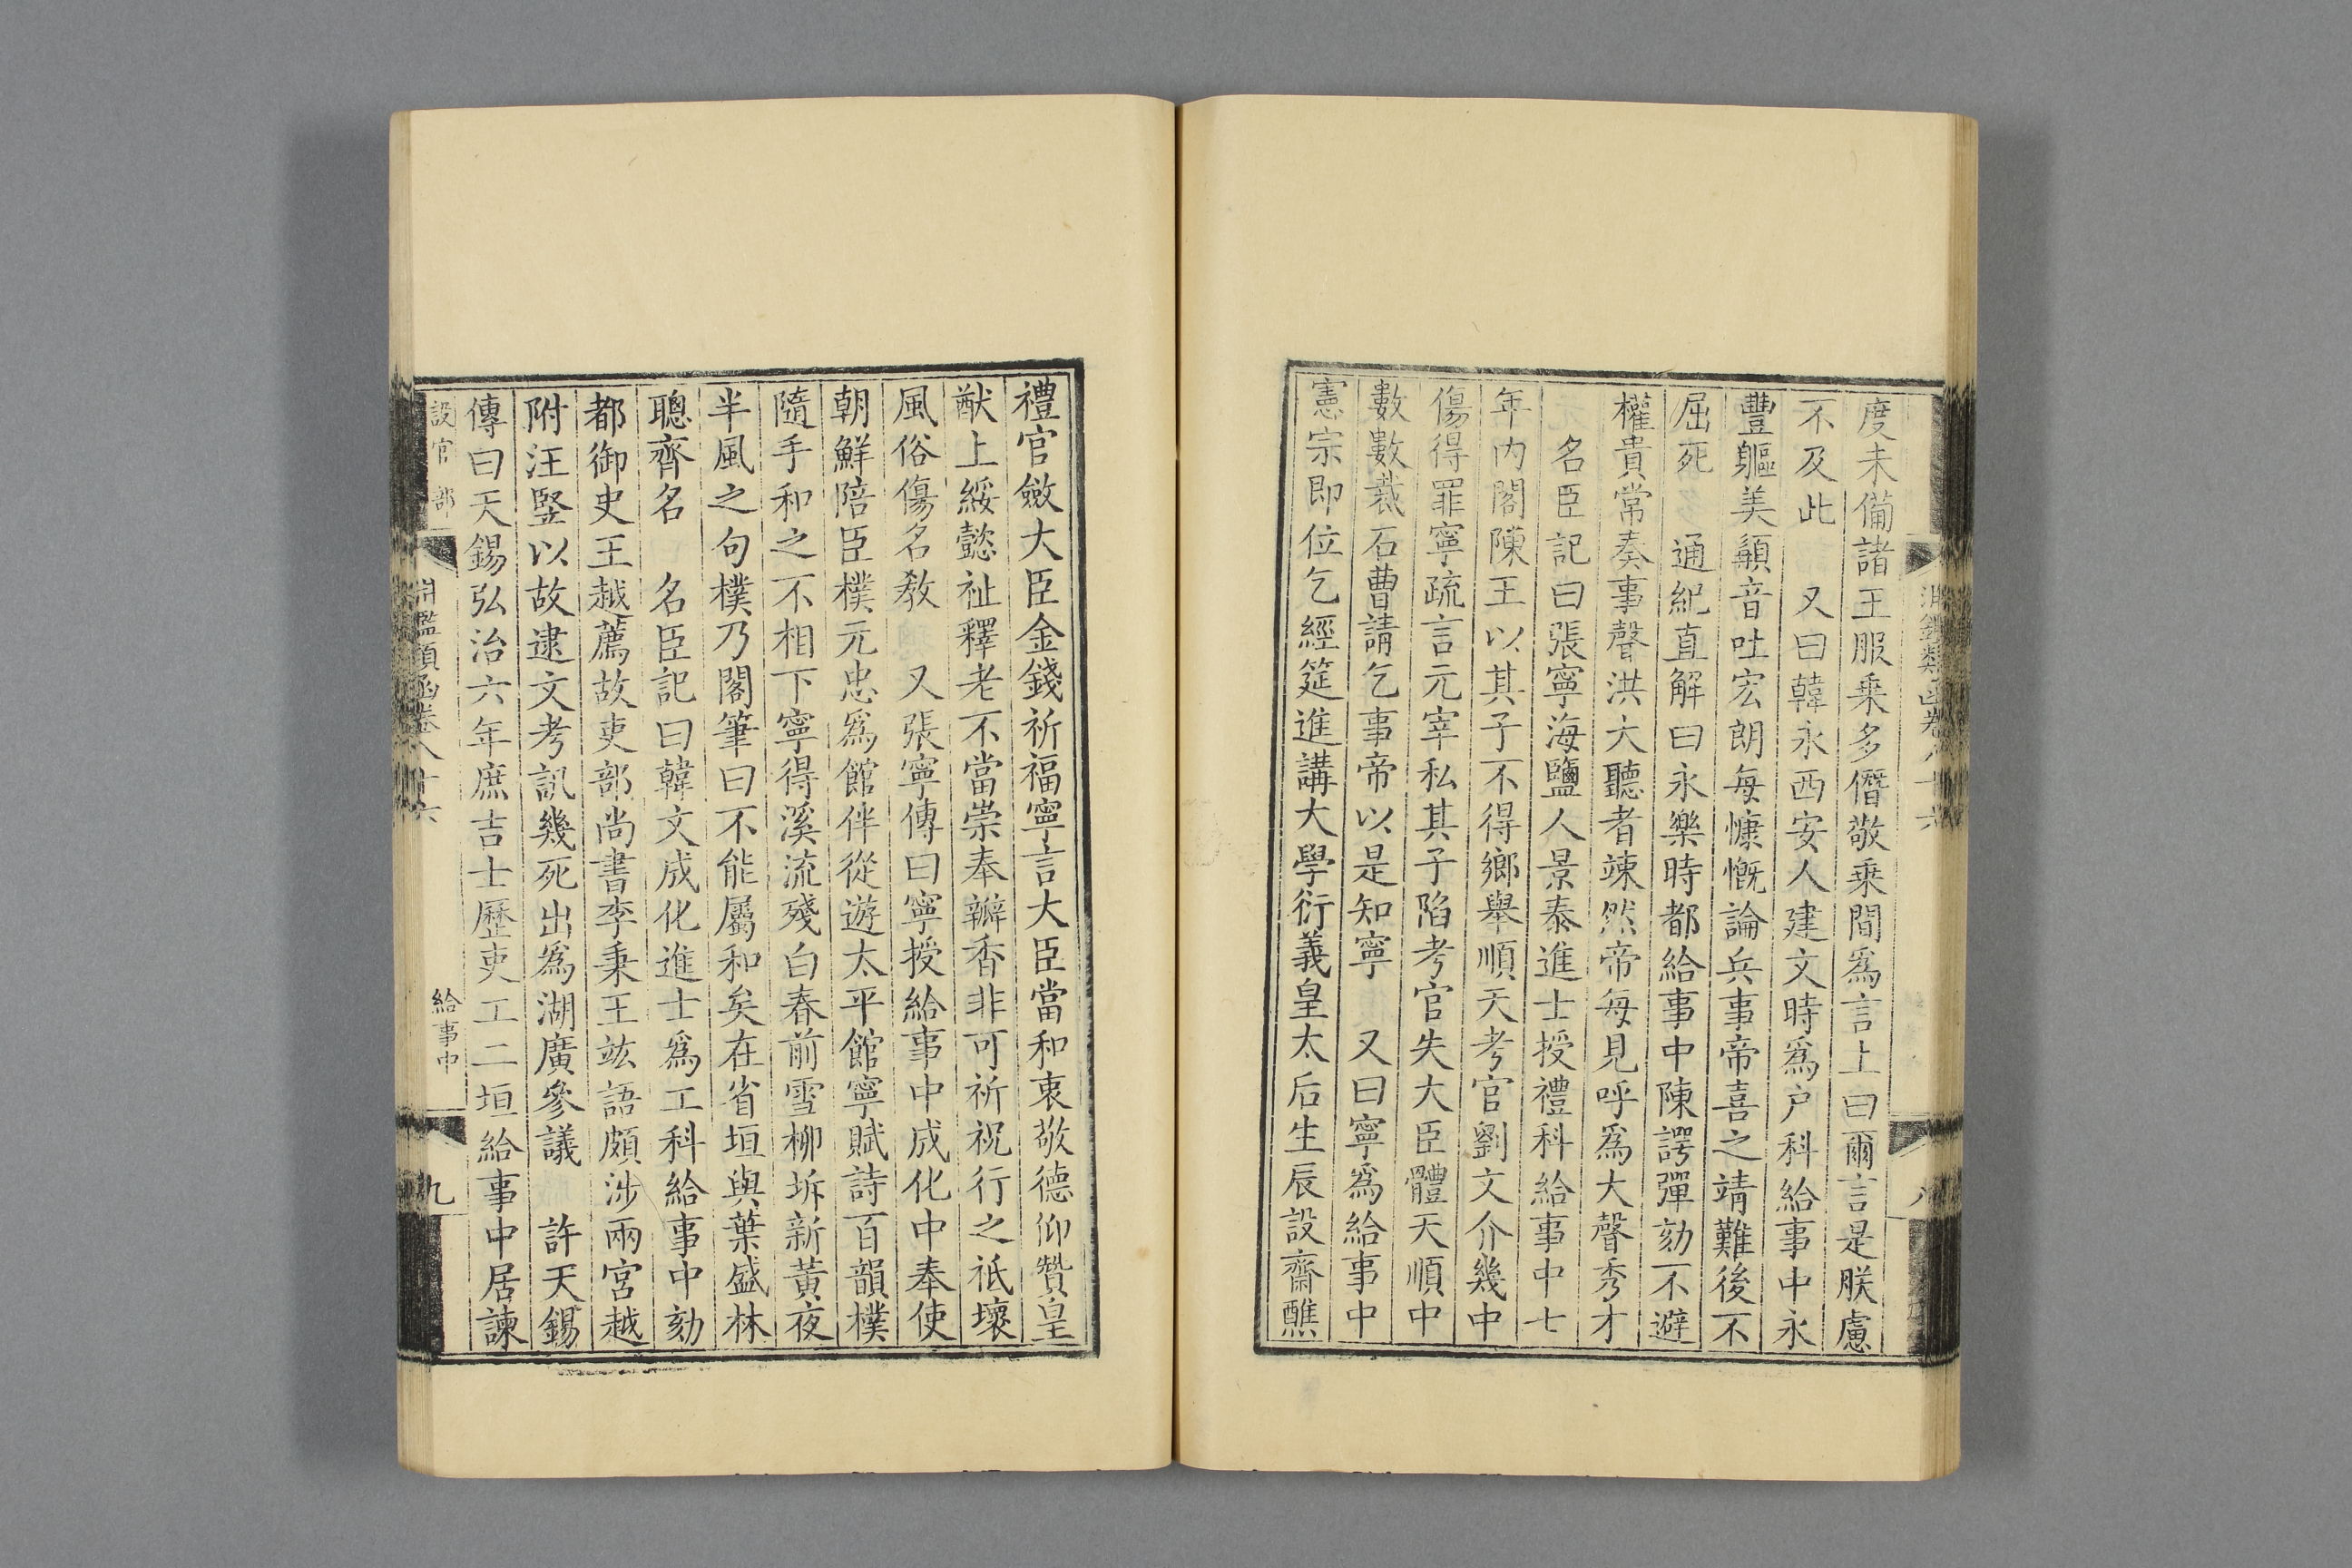 度未備諸王服乗多僭敬乗間爲言上曰爾言是朕慮
不及此 又曰韓永西安人建文時爲户科給事中永
豐軀美顙音吐宏朗每慷慨論兵事帝喜之靖難後不
屈死 通紀直解曰永樂時都給事中陳諤彈劾不避
權貴常奏事聲洪大聽者竦然帝每見呼爲大聲秀才
名臣記曰張寧海鹽人景泰進士授禮科給事中七
年内閣陳王以其子不得鄉舉順天考官劉文介幾中
傷得罪寧疏言元宰私其子陷考官失大臣體天順中
數數裁石曹請乞事帝以是知寧 又曰寧爲給事中
憲宗即位乞經筵進講大學衍義皇太后生辰設齋醮
禮官斂大臣金錢祈福寧言大臣當和衷敬德仰贊皇
猷上綏懿祉釋老不當崇奉瓣香非可祈祝行之祗壞
風俗傷名教 又張寧傳曰寧授給事中成化中奉使
朝鮮陪臣樸元忠爲館伴從遊太平館寧賦詩百韻樸
隨手和之不相下寧得溪流殘白春前雪柳坼新黃夜
半風之句樸乃閣筆曰不能屬和矣在省垣與葉盛林
聰齊名 名臣記曰韓文成化進士爲工科給事中劾
都御史王越薦故吏部尚書李秉王竑語頗涉兩宮越
附汪竪以故逮文考訊幾死出爲湖廣參議 許天錫
傳曰天錫弘治六年庶吉士歷吏工二垣給事中居諫
設官部 淵鑑類函卷八十六 給事中 九